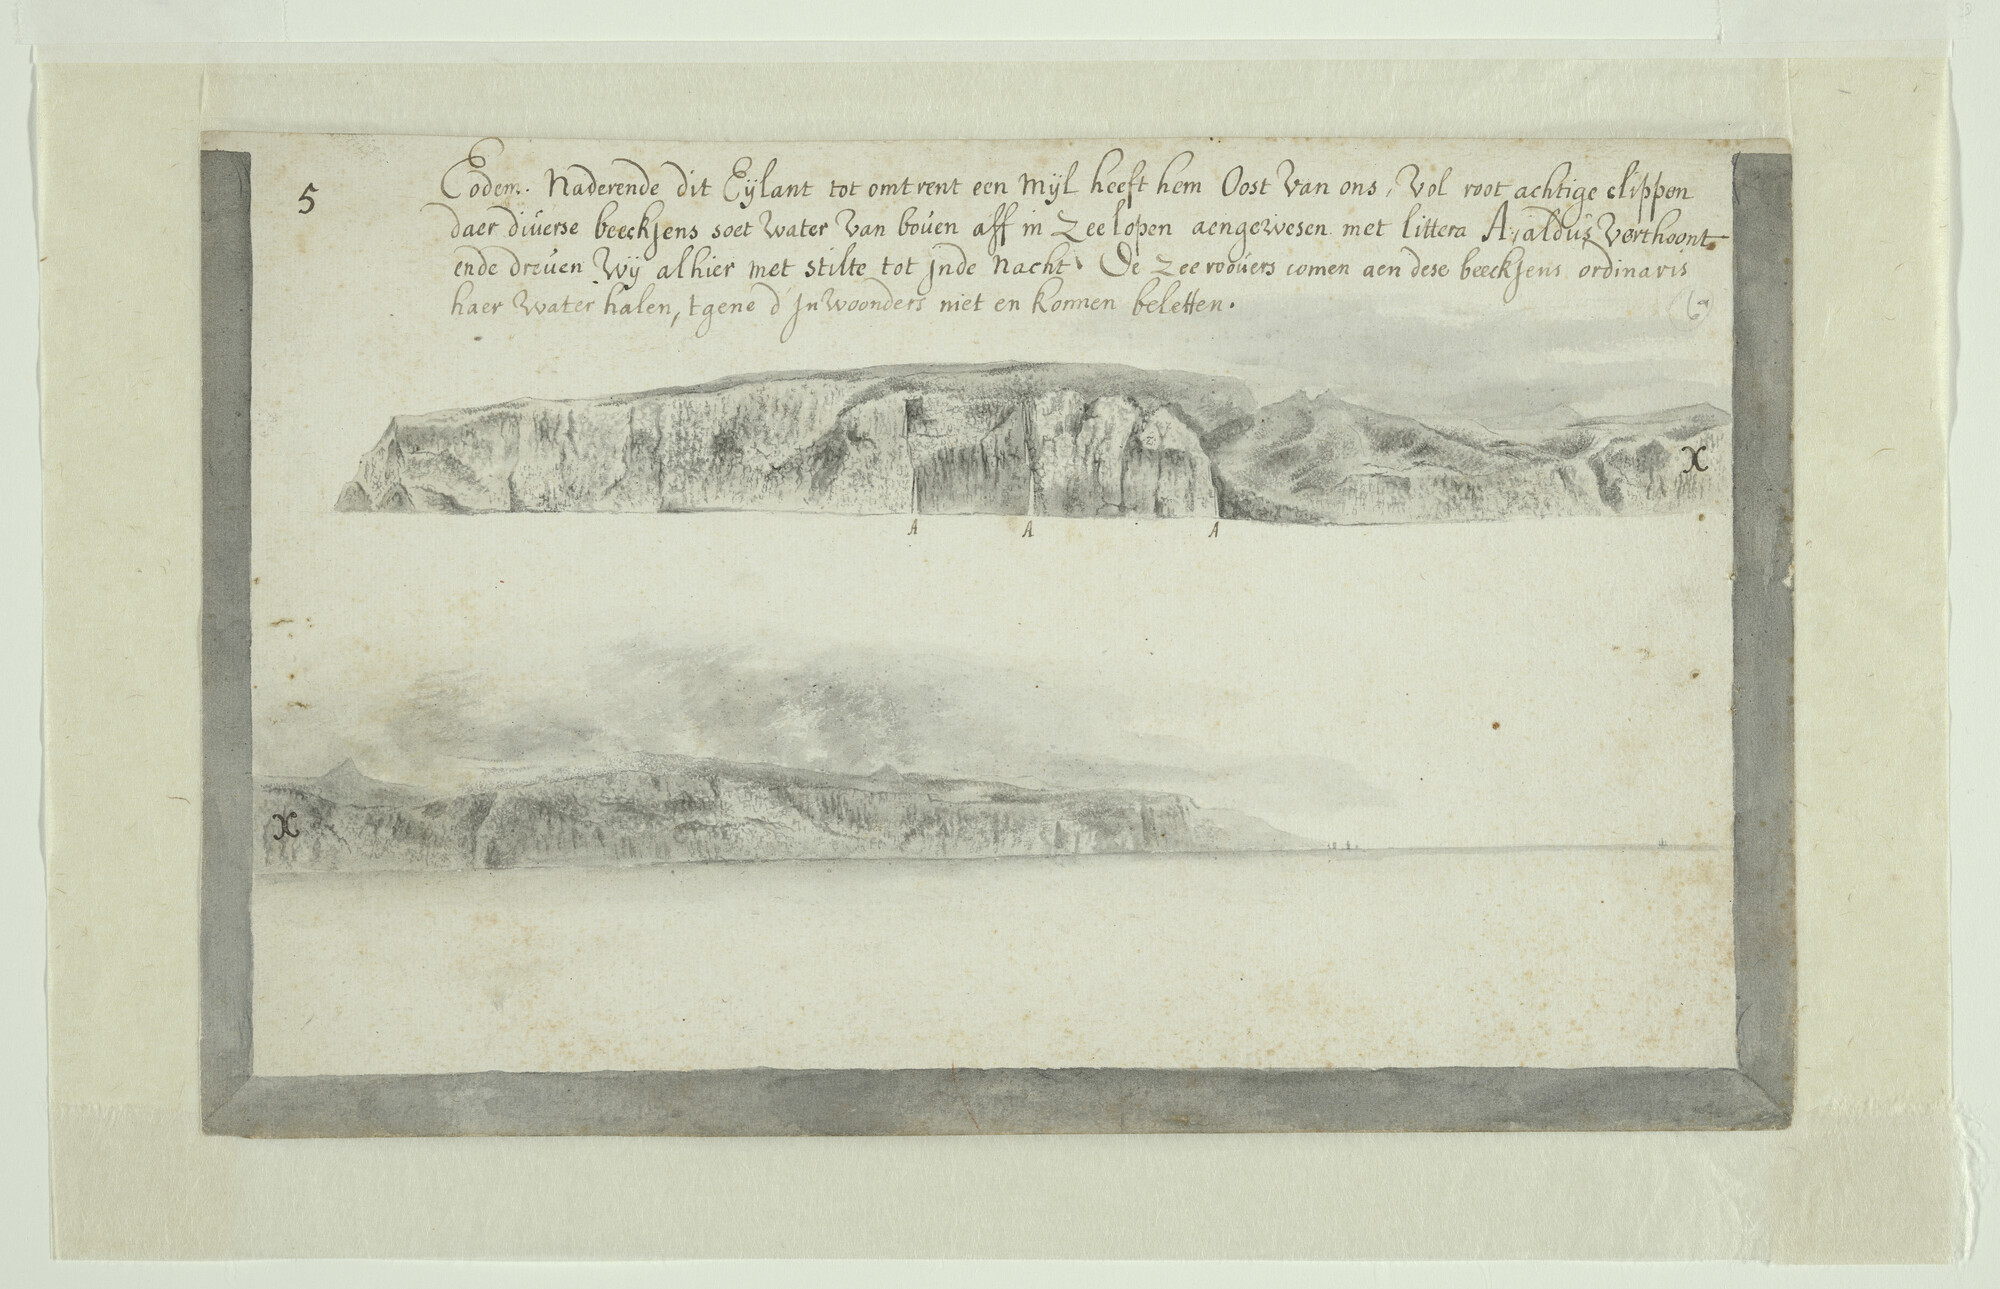 5
Eodem. Naderende dit Eÿlant tot omtrent een Mÿl heeft hem Oost Van ons, Vol root achtige clippen
daer diverse beeckjens soet Water Van boven aff in Zee lopen aengewesen met littera A, aldus Verthoont
ende dreven Wÿ alhier met stilte tot jnde Nacht. De Zee roovers comen aen dese beeckjens ordinaris
haer Water halen, tgene d' jnwoonders niet en konnen beletten.
X
A A A
X